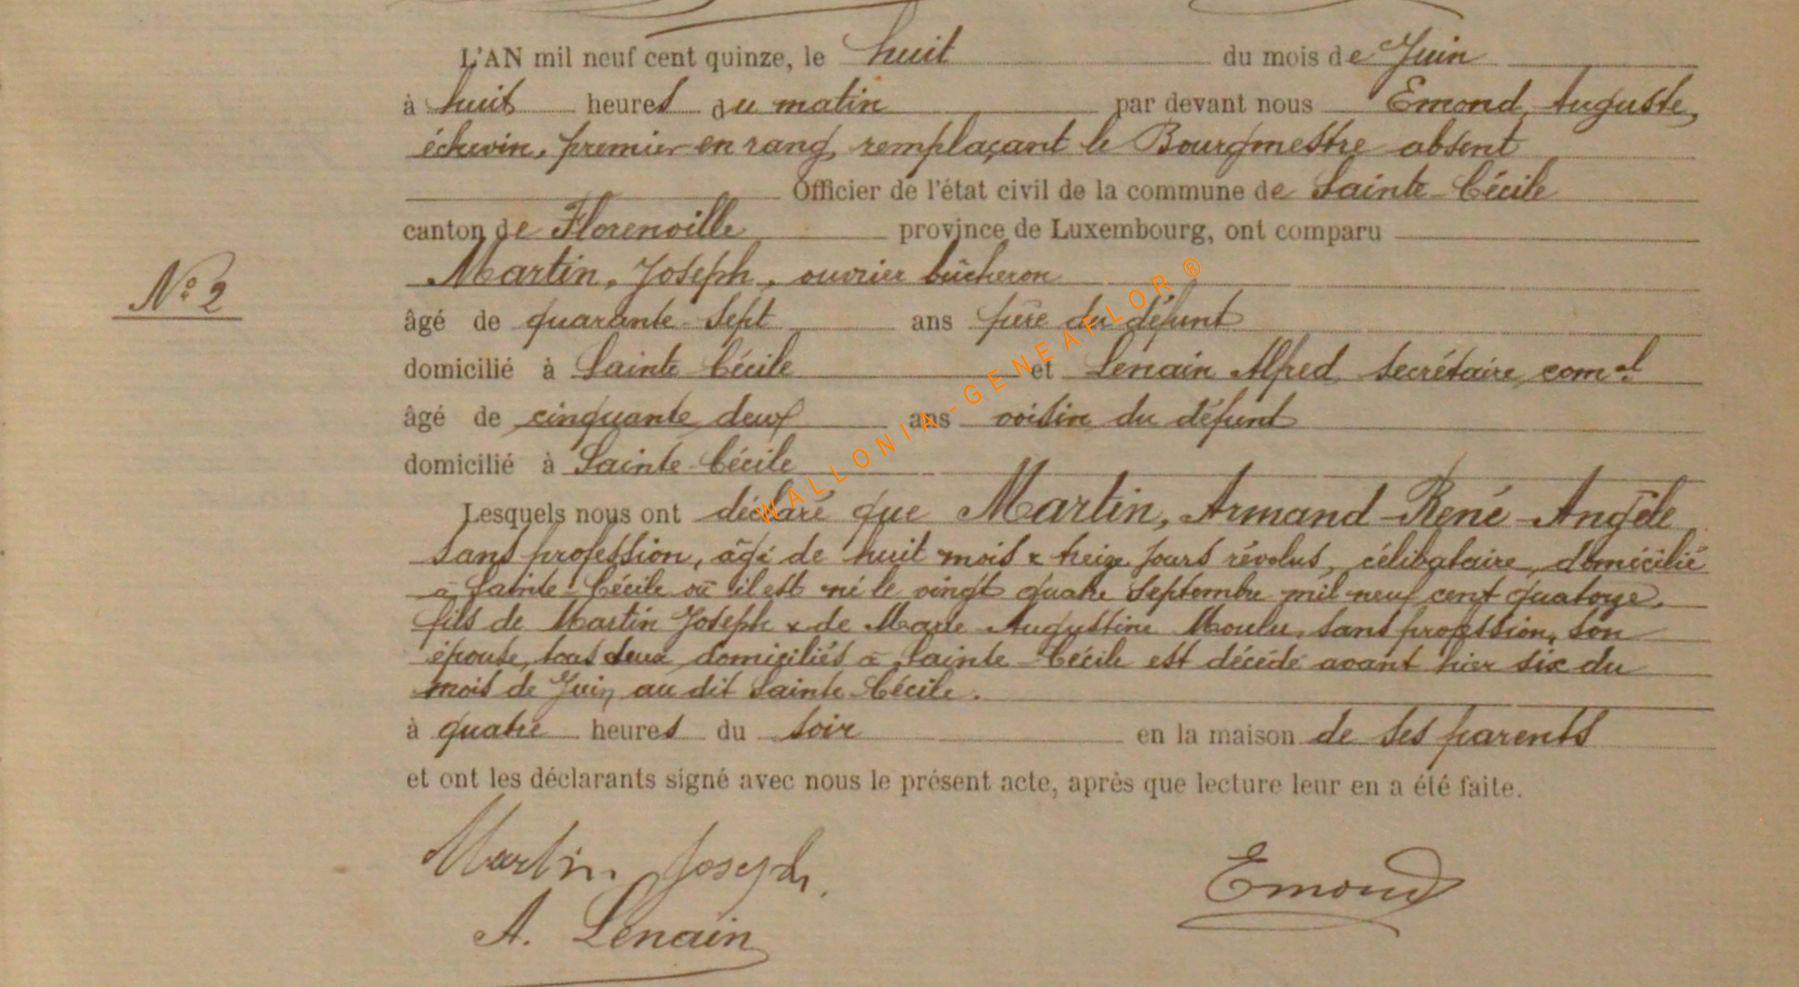 L'AN mil neuf cent quinze, le huit du mois de Juin
à huit heures du matin par devant nous Emond, Auguste,
échevin, premier en rang, remplaçant le Bourgmestre absent
Officier de l'état civil de la commune de Sainte-Cécile
canton de Florenville province de Luxembourg, ont comparu
Martin, Joseph, ouvrier bûcheron
N° 2
âgé de quarante-sept ans père du défunt
domicilié à Sainte Cécile et Lenain Alfred, secrétaire, comal
âgé de cinquante deux ans voisin du défunt
domicilié à Sainte-Cécile
Lesquels nous ont déclaré que Martin, Armand-René-Angèle
sans profession, âgé de huit mois & treize jours révolus, célibataire, domicilié
à Sainte-Cécile où il est né le vingt quatre Septembre mil neuf cent quatorze,
fils de Martin Joseph & de Marie Augustine Moulu, sans profession, son
épouse, tous deux domiciliés à Sainte-Cécile est décédé avant hier six du
mois de Juin, au dit Sainte-Cécile.
à quatre heures du soir en la maison de ses parents
et ont les déclarants signé avec nous le présent acte, après que lecture leur en a été faite.
Martin Joseph.
Emond
A. Lenain
WALLONIA-GENEAFLOR®